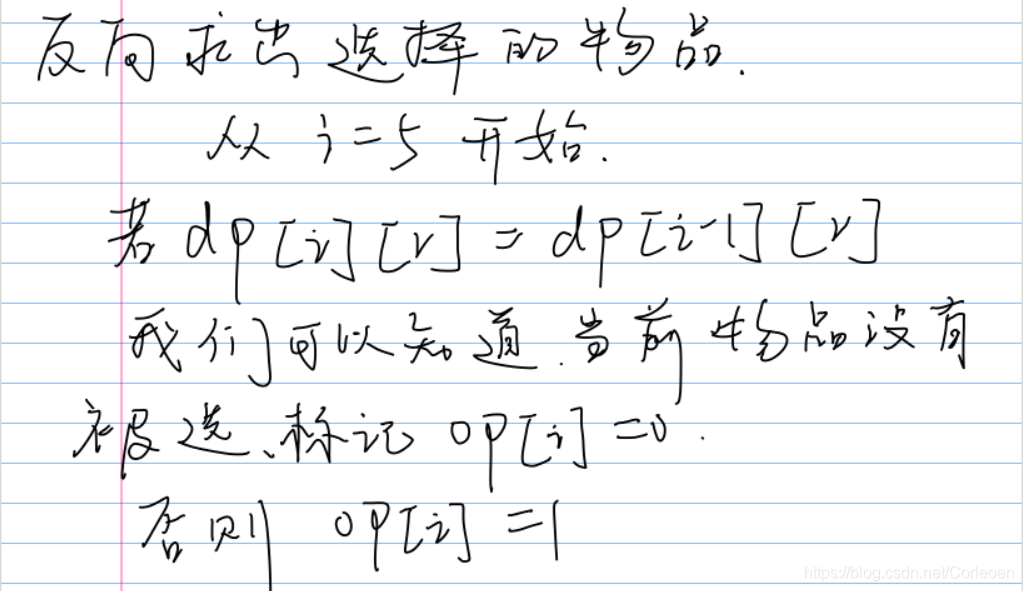 反向求出选择的物品.
从 i=5 开始.
若 dp[i][v] = dp[i-1][v]
我们可以知道.当前物品没有
被选、标记 op[i]=0.
否则 op[i]=1
https://blog.csdn.net/Corleoen